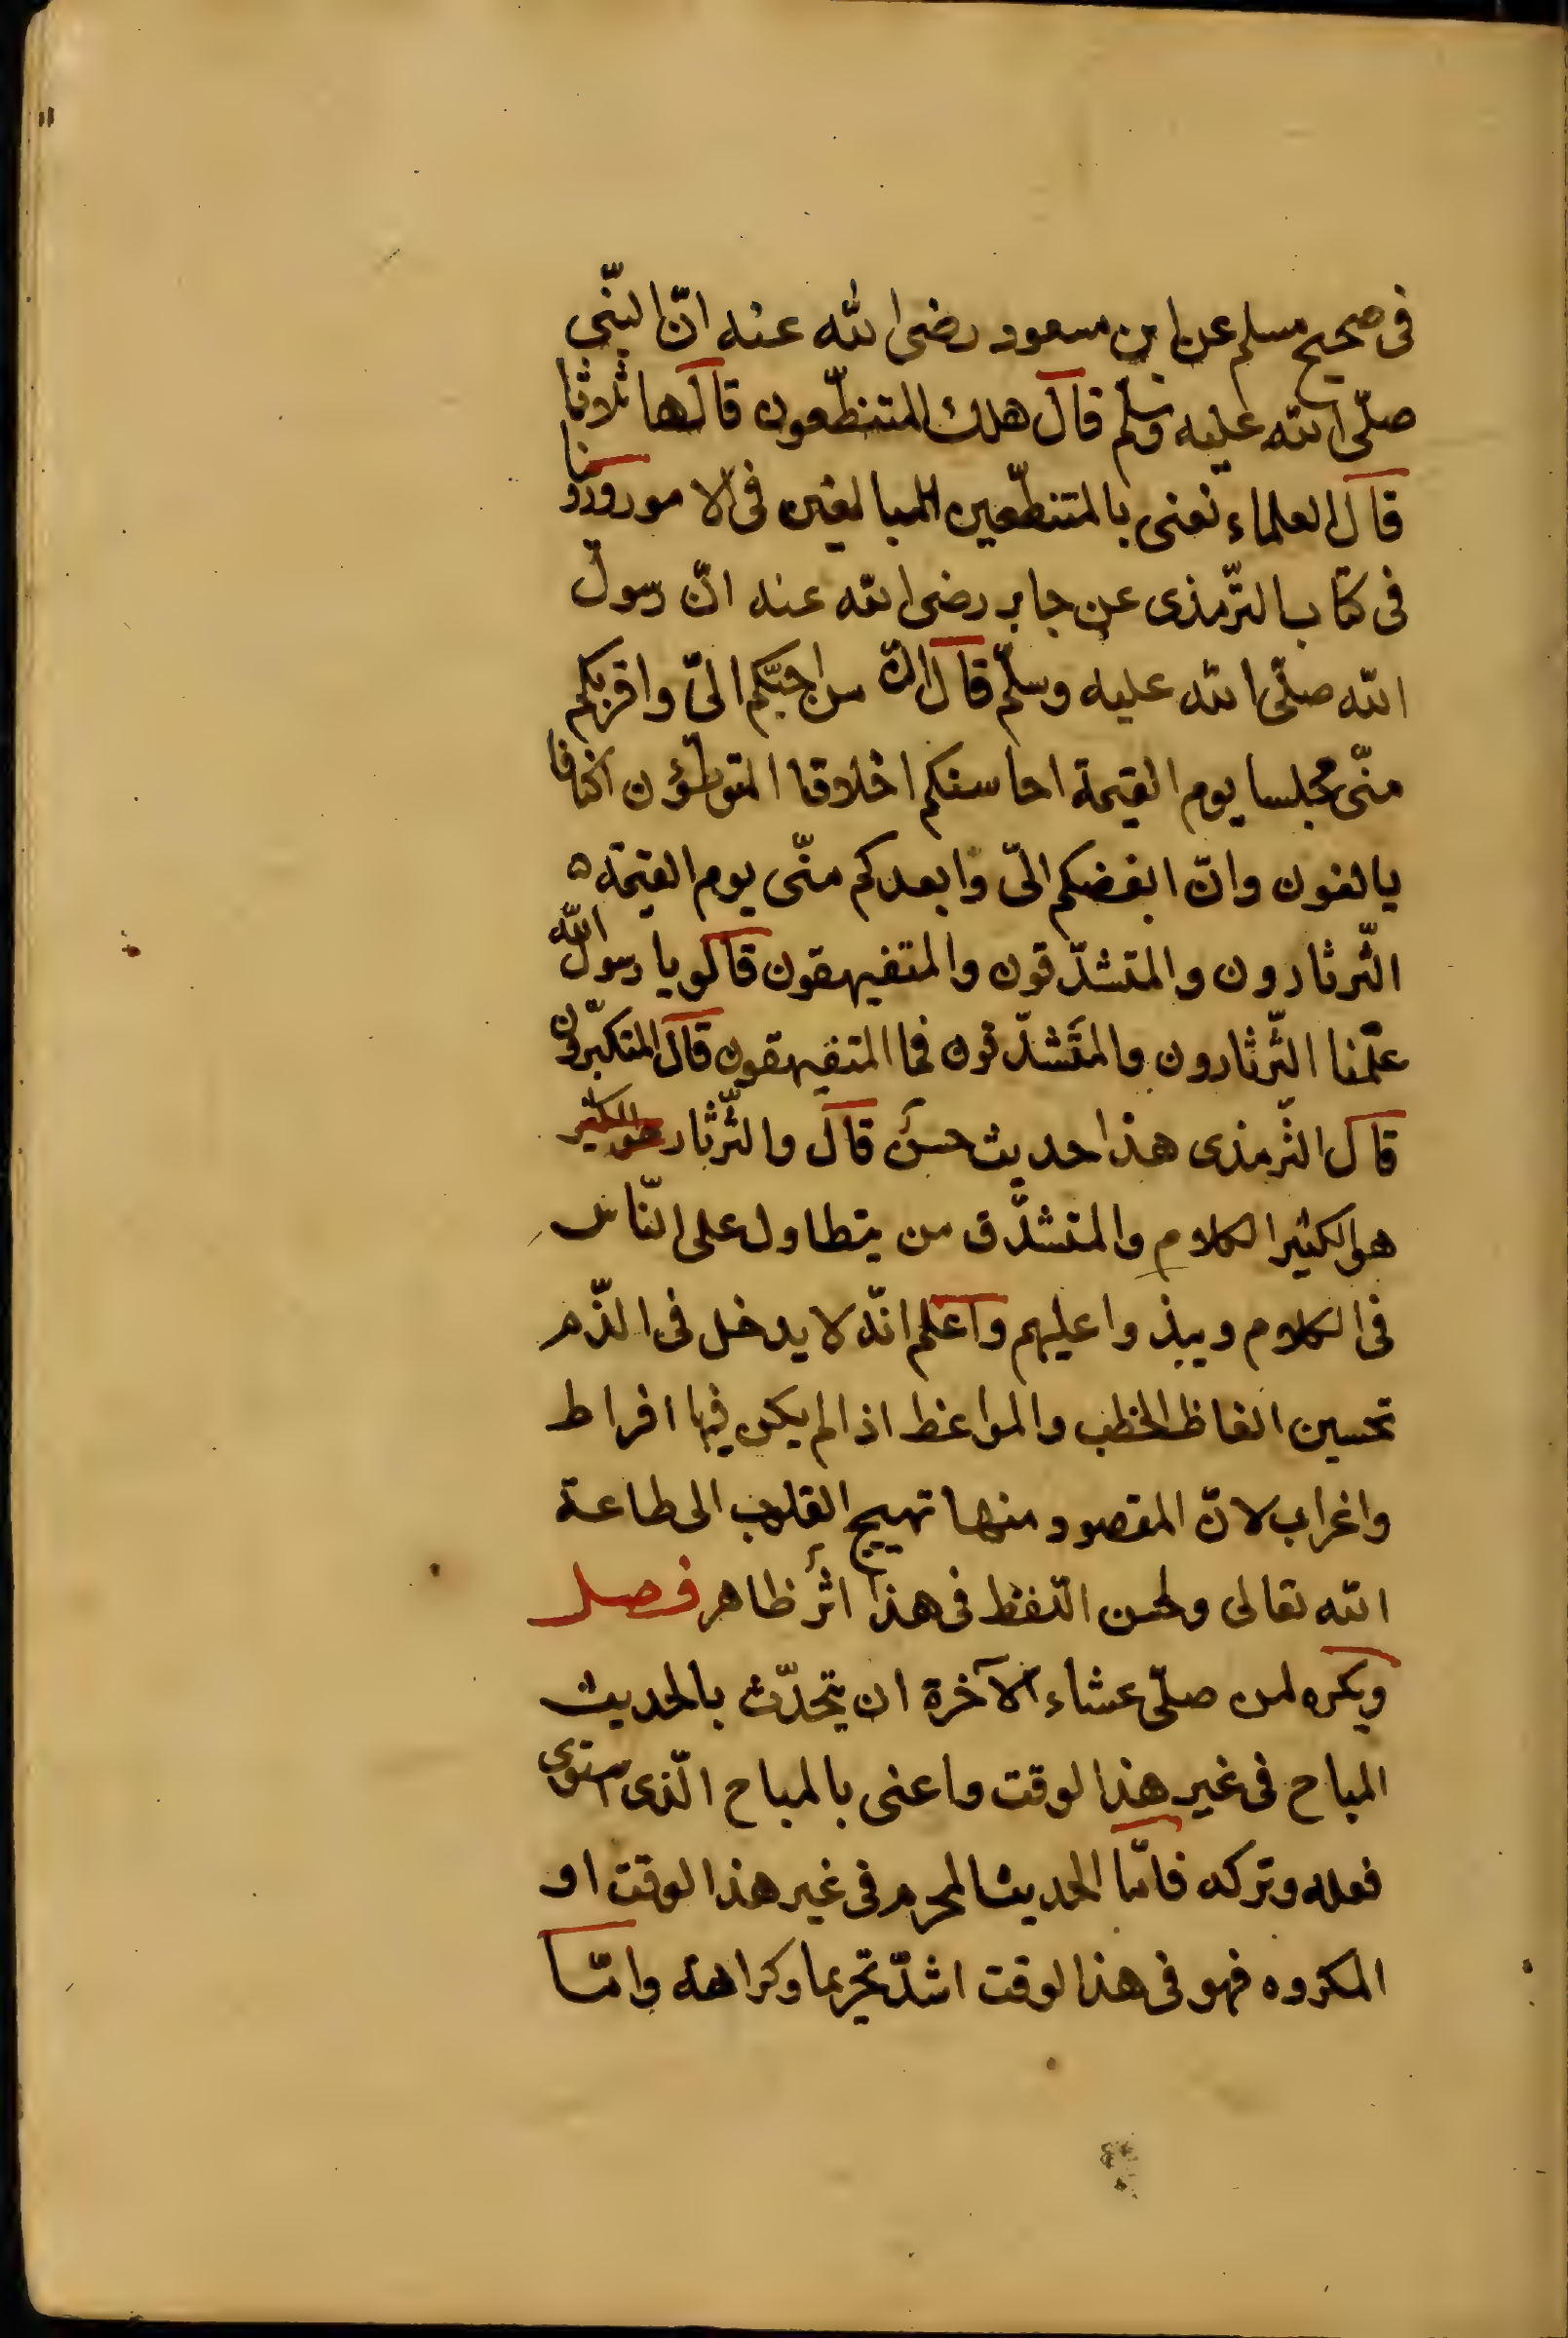 ١١
فى صحيح مسلم عن ابن مسعود رضى الله عنه انّ النّبى
صلّى الله عليه وسلّم قال هلك المتنطّعون قالها ثلاثا
قال العلماء نعنى بالمتنطّعين المبالغين فى الامور وروينا
فى كتاب التّرمذى عن جابر رضى الله عنه انّ رسول
الله صلّى الله عليه وسلّم قال انّ من احبّكم الىّ واقربكم
منّى مجلسا يوم القيمة احاسنكم اخلاقا الموطّؤن اكنافا
يالفون وانّ ابغضكم الىّ وابعدكم منّى يوم القيمة ه
الثّرثارون والمتشدّقون والمتفيهقون قالو يا رسول الله
علّمنا الثّرثارون والمتشدّقون فما المتفيهقون قال المتكبّرون
قال التّرمذى هذا حديث حسن قال والثّرثار هو الكثير
هو الكثير الكلام والمتشدّق من يتطاول على النّاس
فى الكلام ويبذوا عليهم واعلم انّه لا يدخل فى الذّم
تحسين الفاظ الخطب والمواعظ اذا لم يكن فيها افراط
واغراب لانّ المقصود منها تهييج القلوب الى طاعة
الله تعالى ولحسن اللّفظ فى هذا اثر ظاهر فصل
ويكره لمن صلّى عشاء الآخرة ان يتحدّث بالحديث
المباح فى غير هذا لوقت واعنى بالمباح الّذى استوى
فعله وتركه فامّا الحديث المحرم فى غير هذا لوقت او
المكروه فهو فى هذا لوقت اشدّ تحريما وكراهة وامّا